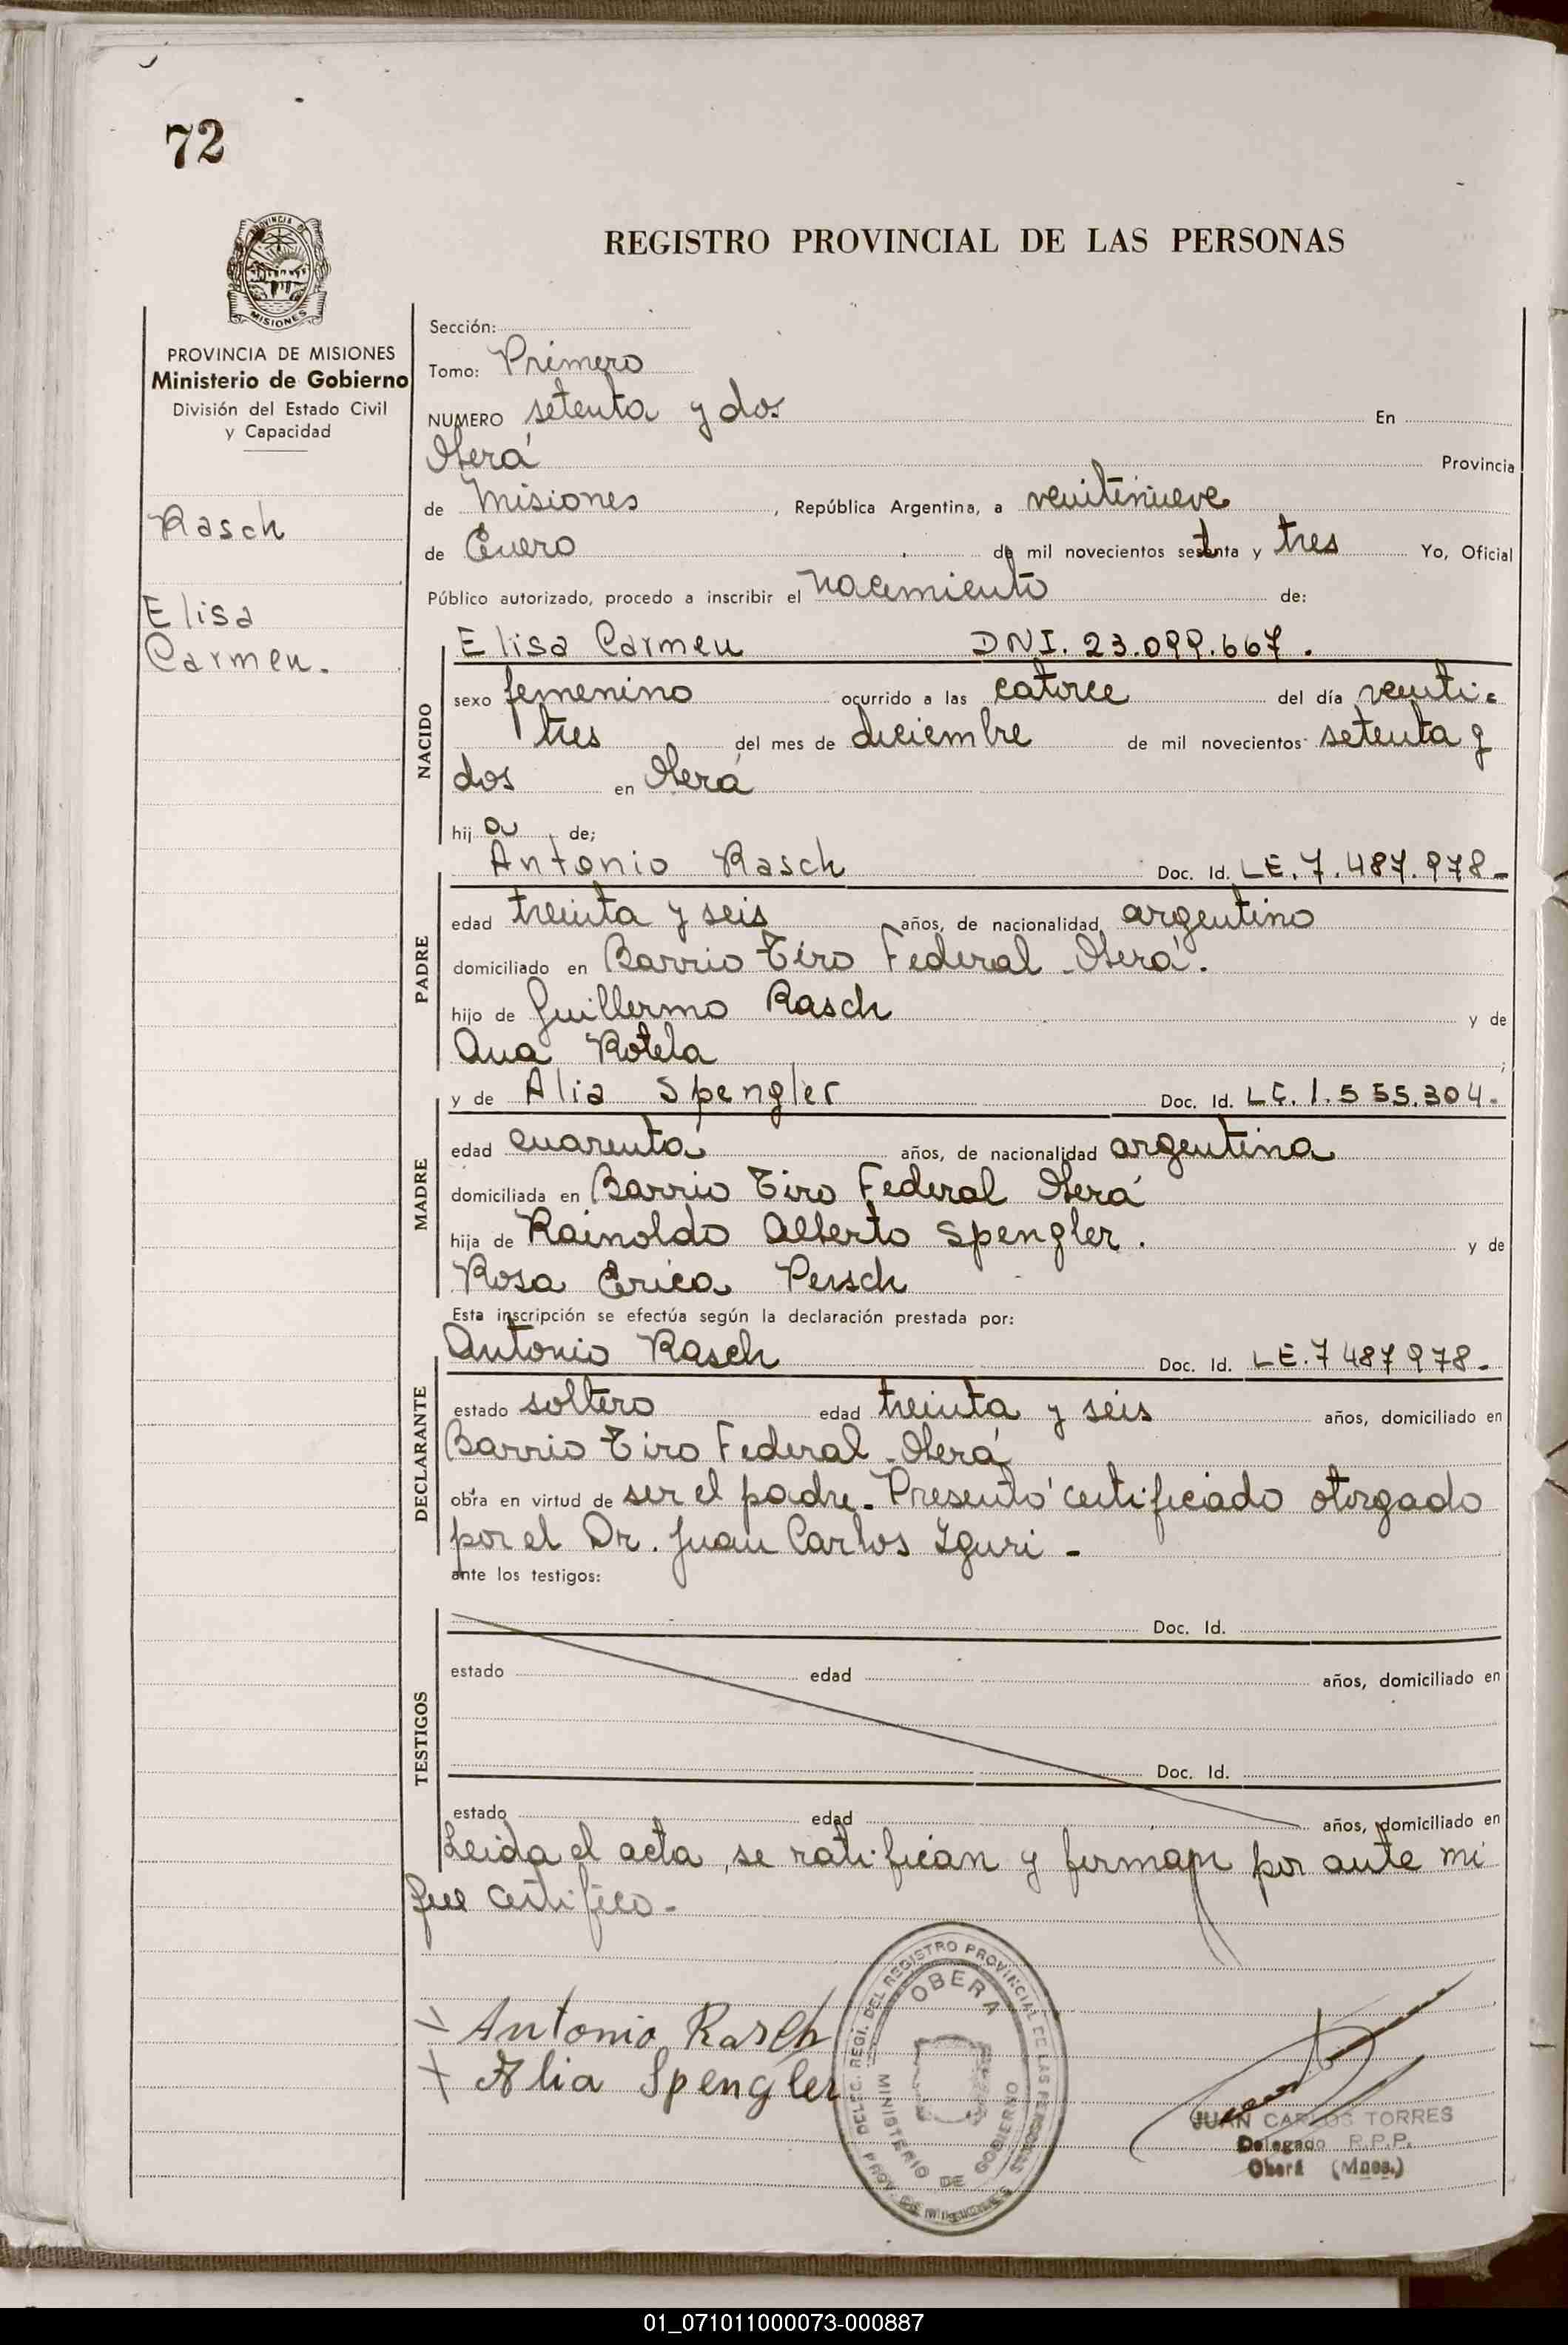 72
PROVINCIA DE
MISIONES
PROVINCIA DE MISIONES
Ministerio de Gobierno
División del Estado Civil
y Capacidad
Rasch
Elisa
Carmen.
REGISTRO PROVINCIAL DE LAS PERSONAS
Sección:
Tomo: Primero
NUMERO setenta y dos En
Oberá Provincia
de Misiones, República Argentina, a veintinueve
de Enero de mil novecientos setenta y tres Yo, Oficial
Público autorizado, procedo a inscribir el nacimiento de:
NACIDO
Elisa Carmen DNI. 23.099.667.
sexo femenino ocurrido a las catorce del día veinti=
tres del mes de diciembre de mil novecientos setenta y
dos en Oberá
hija de;
PADRE
Antonio Rasch Doc. Id. LE. 7.487.978-
edad treinta y seis años, de nacionalidad argentino
domiciliado en Barrio Tiro Federal - Oberá.
hijo de Guillermo Rasch y de
Ana Rotela ;
MADRE
y de Alia Spengler Doc. Id. LC. 1.555.304-
edad cuarenta años, de nacionalidad argentina
domiciliada en Barrio Tiro Federal Oberá
hija de Rainoldo Alberto Spengler. y de
Rosa Erica Persch
Esta inscripción se efectúa según la declaración prestada por:
DECLARANTE
Antonio Rasch Doc. Id. LE. 7 487 978-
estado soltero edad treinta y seis años, domiciliado en
Barrio Tiro Federal - Oberá
obra en virtud de ser el padre - Presentó certificado otorgado
por el Dr. Juan Carlos Iguri -
ante los testigos:
TESTIGOS
Doc. Id.
estado edad años, domiciliado en
Doc. Id.
estado edad años, domiciliado en
Leida el acta, se ratifican y firman por ante mi
que certifico-
Antonio Rasch
Alia Spengler
DELEG. REGI. DEL REGISTRO PROVINCIAL DE LAS PERSONAS
OBERA
MINISTERIO DE GOBIERNO
PROV. DE MISIONES
JUAN CARLOS TORRES
Delegado R.P.P.
Oberá (Mnes.)
01_071011000073-000887